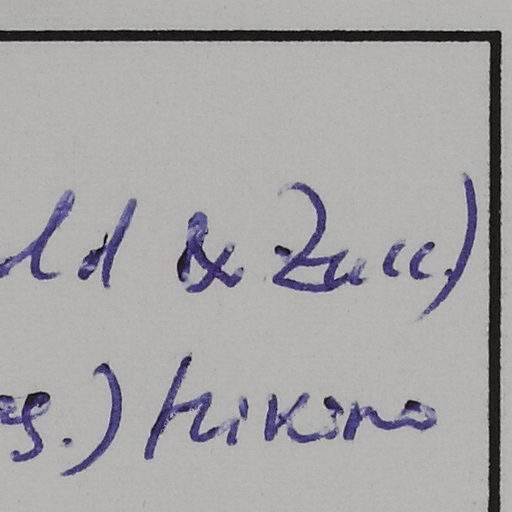 ld & Zucc.)
g.) Hikino